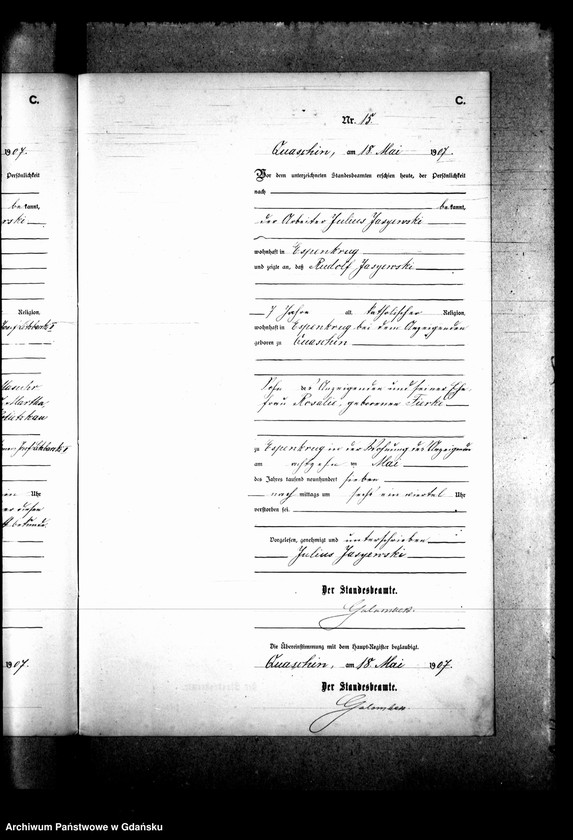 C.
1907.
Persönlichkeit
bekannt,
Religion,
Martha
Uhr
1907.
C.
Nr. 15
Quaschin, am 18 Mai 1907.
Vor dem unterzeichneten Standesbeamten erschien heute, der Persönlichkeit
nach
bekannt,
der Arbeiter Julius Jasyewski
wohnhaft in Espenkrug
und zeigte an, daß Rudolf Jasyewski
7 Jahre alt, katholischer Religion,
wohnhaft in Espenkrug bei dem Anzeigenden
geboren zu Quaschin
Sohn des Anzeigenden und seiner Ehe-
frau Rosalie, geborenen
zu Espenkrug in der Wohnung des Anzeigenden
am achtzehn ten Mai
des Jahres tausend neunhundert sieben
nach mittags um sechs ein viertel Uhr
verstorben sei.
Vorgelesen, genehmigt und unterschrieben
Julius Jasyewski
Der Standesbeamte.
Die Übereinstimmung mit dem Haupt-Register beglaubigt.
Quaschin, am 18 Mai 1907.
Der Standesbeamte.
Archiwum Państwowe w Gdańsku